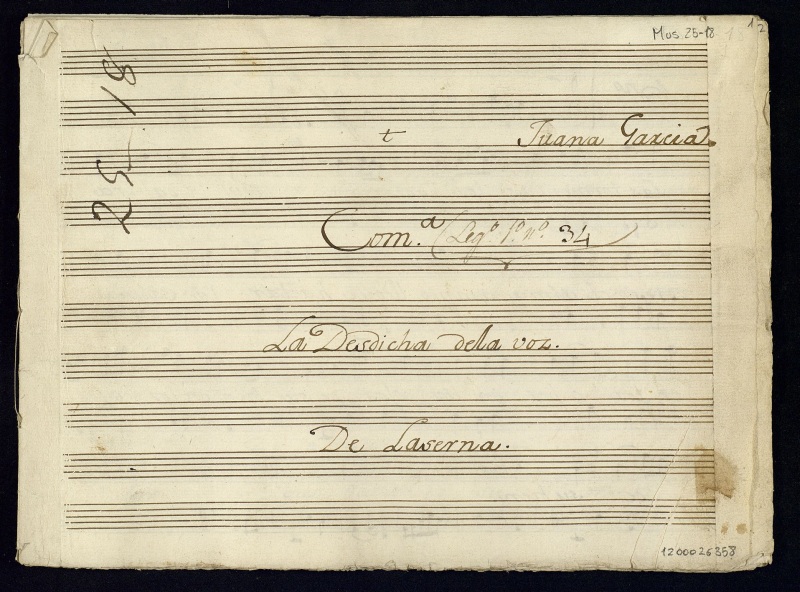 Mus 25-18
12
25-18
t
Juana Garcia.
Com.ª (Leg.º 1.º n.º 34
La Desdicha dela voz.
De Laserna.
1200026358